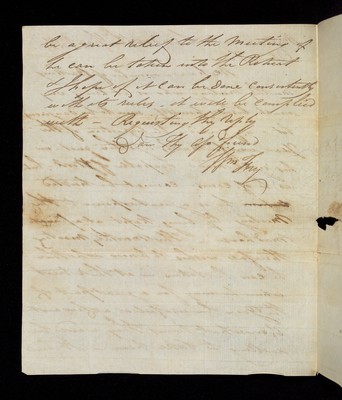 be a great relief to the Meeting if
he can be taken into the Retreat
I hope if it can be done consistently
with its rules. it will be complied
with Requesting thy reply
I am thy aff friend
Wm Fry